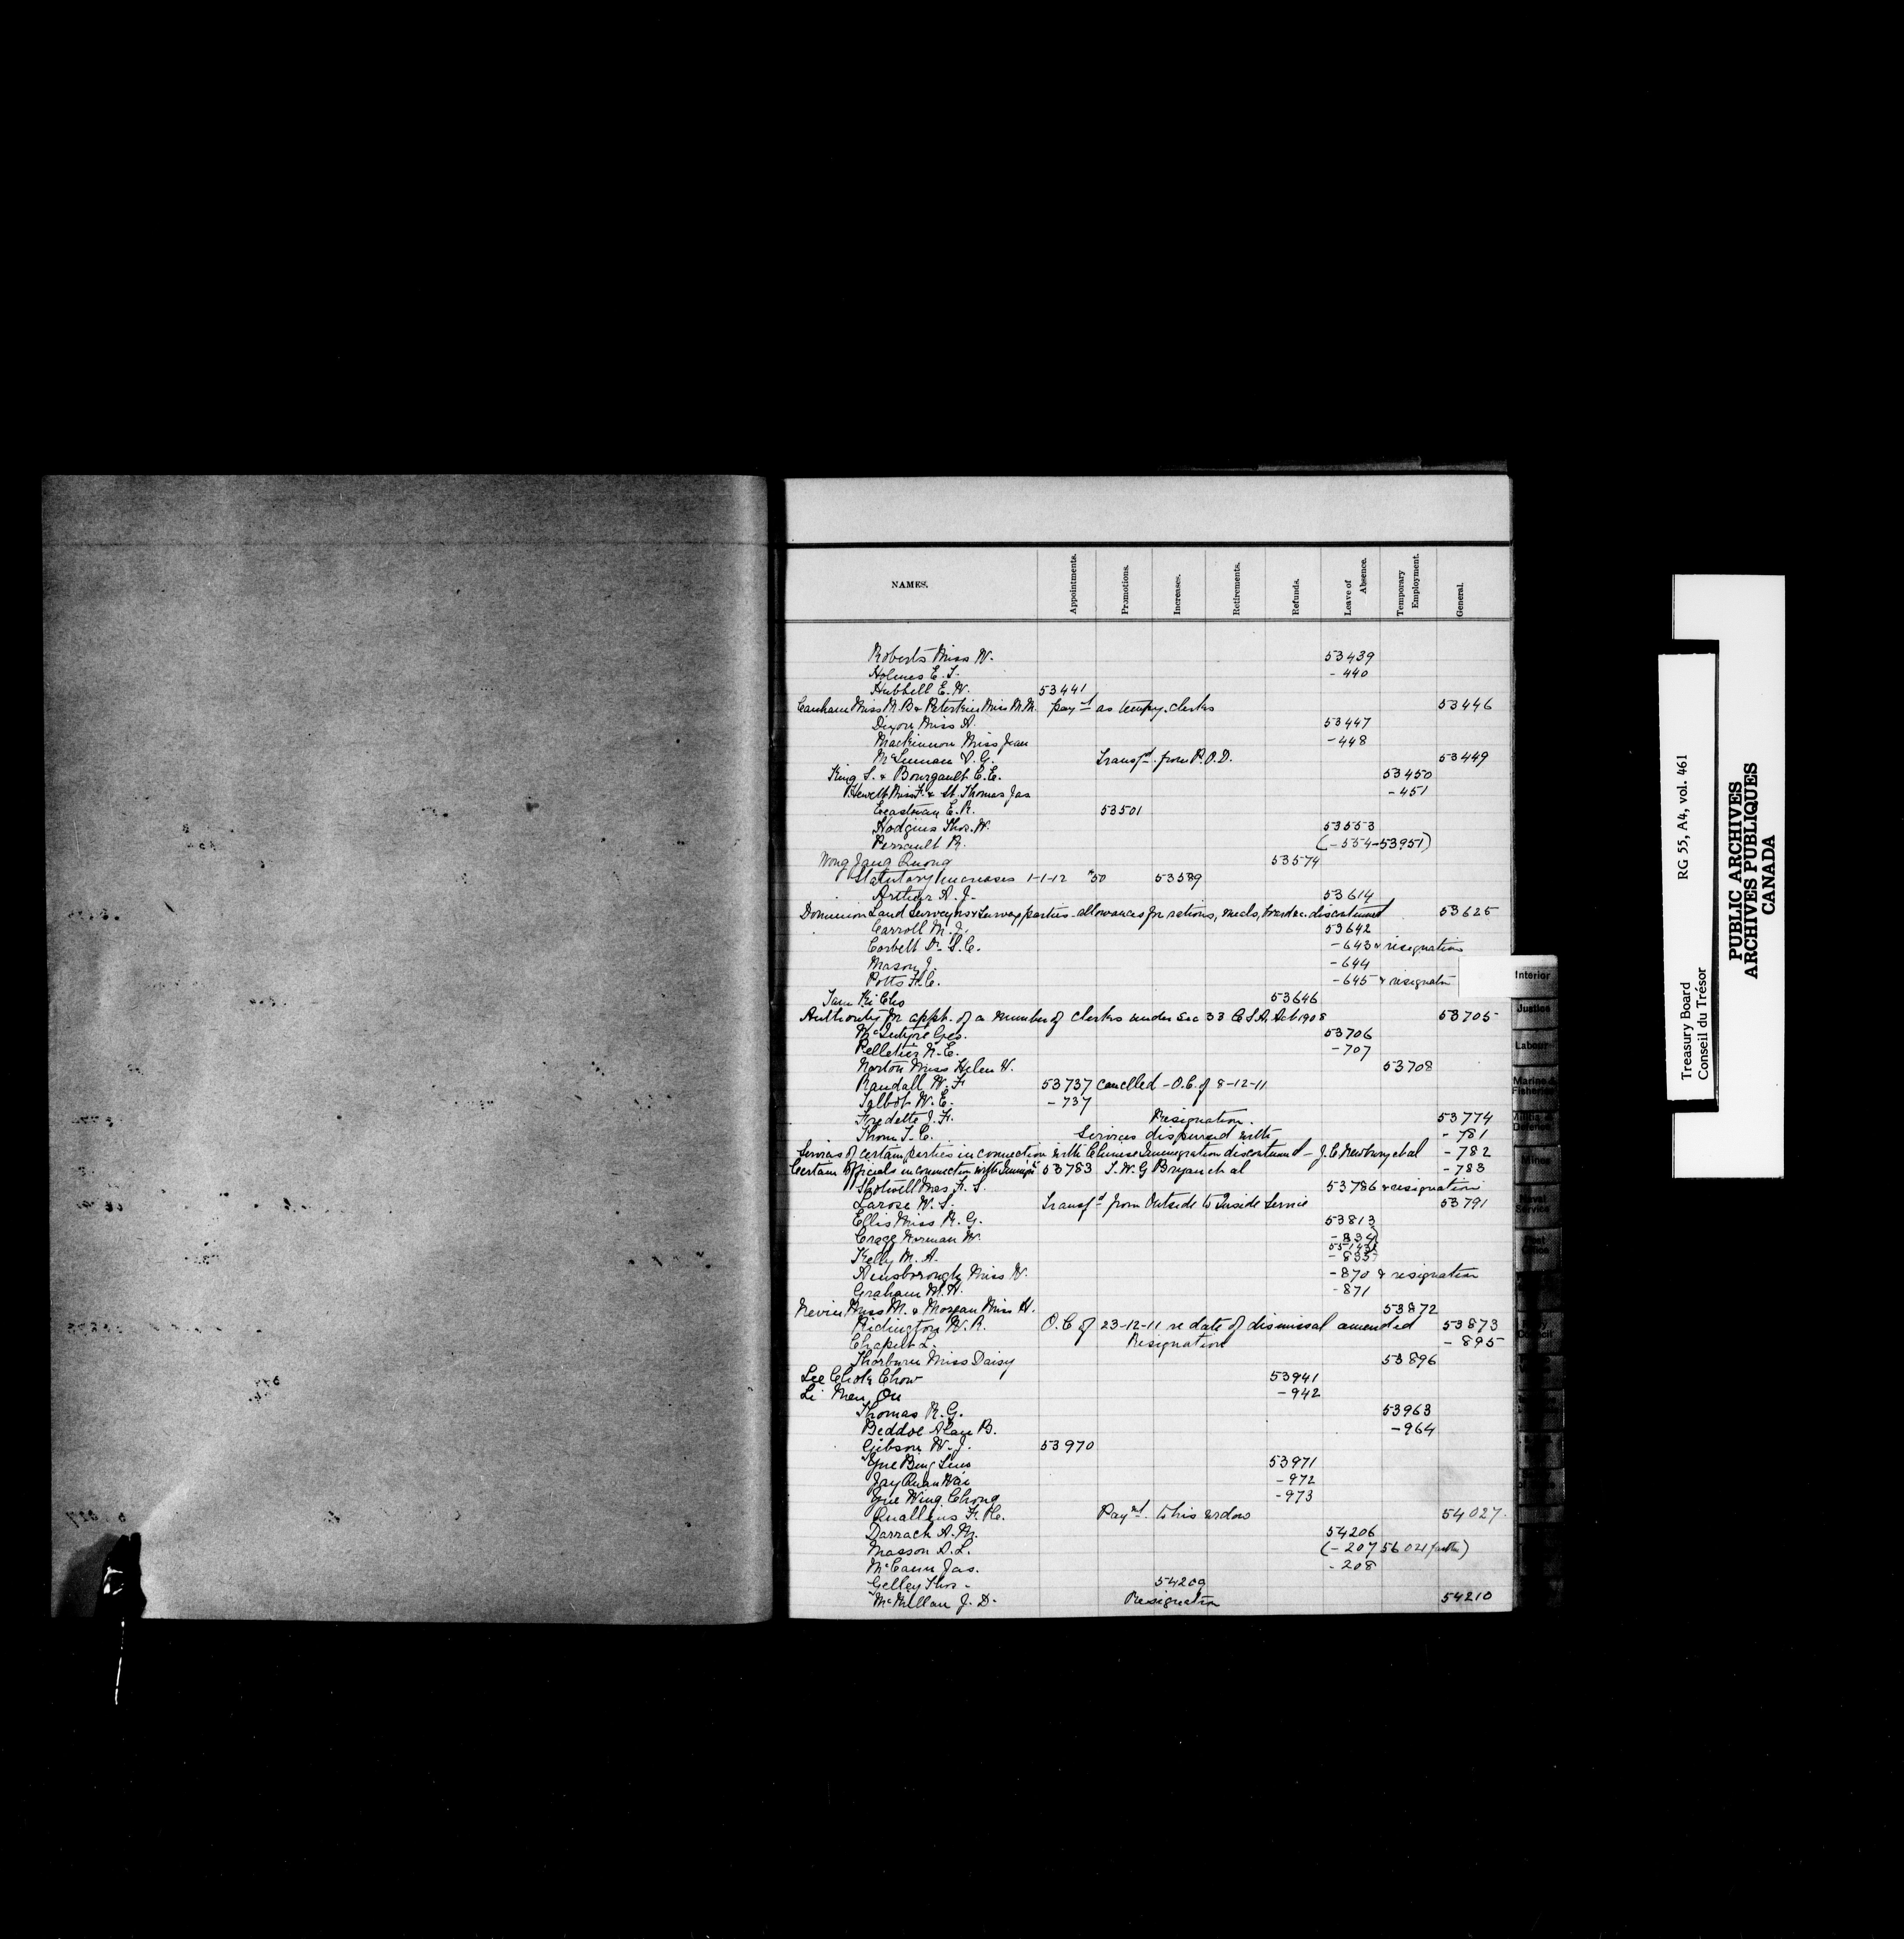 NAMES. Appointments. Promotions. Increases. Retirements. Refunds. Leave of Absence. Temporary Employment. General.
Roberts Miss W. 53439
Holmes E. T. - 440
Hubbell E. W. 53441
Miss M. B. & Peterkin Miss M. M. pay't as tempy. clerks 53446
Dixon Miss A. 53447
Mackinnon Miss Jean - 448
McLennan D. G. Transf'd. from P.O.D. 53449
King S. & Bourgault C. E. 53450
Hewett Miss F. & St. Thomas Jas - 451
E. R. 53501
Hodgins Thos. W. 53553
Perrault R. (- 554 - 53951)
Wong Quong 53574
Statutory Increases 1-1-12 $50 53589
Arthur A. J. 53614
Dominion Land Surveyors & Survey parties - allowances for rations, meals, discontinued 53625
Carroll M. J. 53642
Corbett Dr. S. C. - 643 & resignation
Mason J. - 644
Potts F. C. - 645 & resignatn
Tam Ki Cho 53646
Authority for appt. of a number of clerks under Sec 33 C.S.A. Act 1908 53705
McIntyre Geo. 53706
Pelletier N. E. - 707
Norton Miss Helen H. 53708
Randall W. F. 53737 cancelled - O.C. of 8-12-11
Talbot W. E. - 737
Fredette J. F. Resignation. 53774
Thom T. C. Services dispensed with - 781
Services of certain parties in connection with Chinese Immigration discontinued - J. C. Newbury et al - 782
Certain Officials in connection with Immign 53783 T. W. G. Bryan et al - 783
Shotwell Mrs F. S. 53786 & resignation
Larose W. S. Transf'd from Outside to Inside Service 53791
Ellis Miss R. G. 53813
Cragg Norman W. - 834
55143
Kelly M. A. - 835
Ainsborough Miss W. - 870 & resignation
Graham M. H. - 871
Nevin Miss M. & Morgan Miss H. 53872
Ridington W. R. O.C. of 23-12-11 re date of dismissal amended 53873
Chaput L. Resignation - 895
Thorburn Miss Daisy 53896
Lee Chok Chow 53941
Li Men Ou - 942
Thomas R. G. 53963
Beddoe Alan B. - 964
Gibson W. J. 53970
Yue Bing 53971
Jay Quan Wai - 972
Yue Wing Chong - 973
F. C. Paymt. to his widow 54027
Darrach A. M. 54206
Masson D. L. (- 207 56021 further)
McCann Jas. - 208
Gelley Thos - 54209
McMillan J. D. Resignation 54210
Interior
Justice
Labour
Marine & Fisheries
Militia & Defence
Mines
Naval Service
Post Office
Treasury Board RG 55, A4, vol. 461
Conseil du Trésor
PUBLIC ARCHIVES
ARCHIVES PUBLIQUES
CANADA